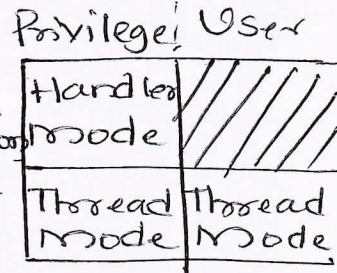 Privilege User
Handler
Mode
Thread Thread
Mode Mode